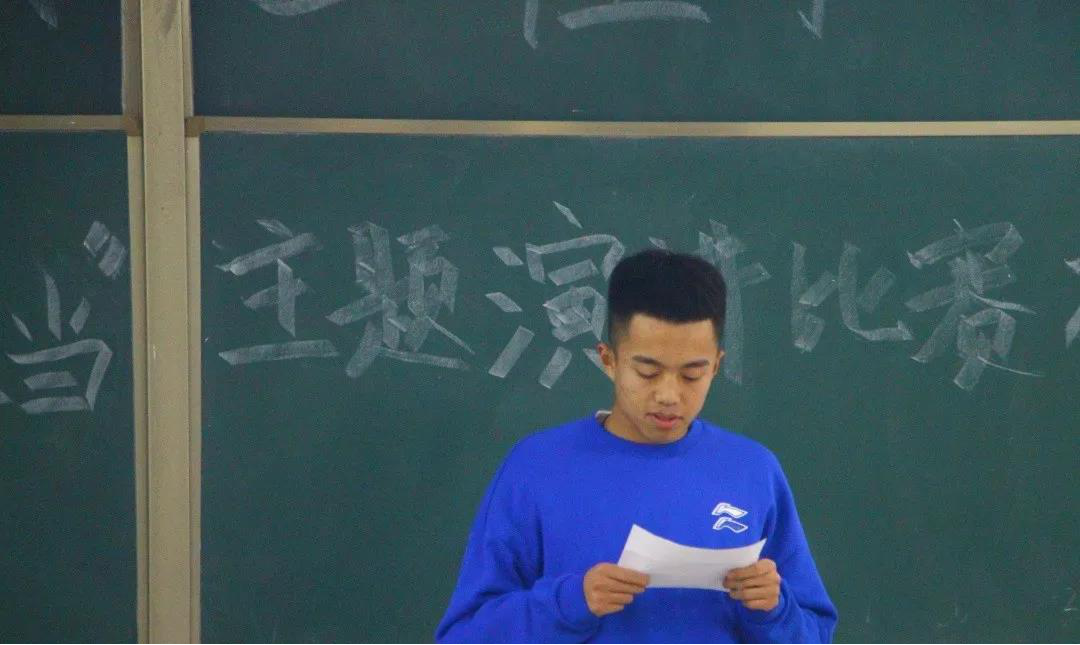 当”主题演讲比赛